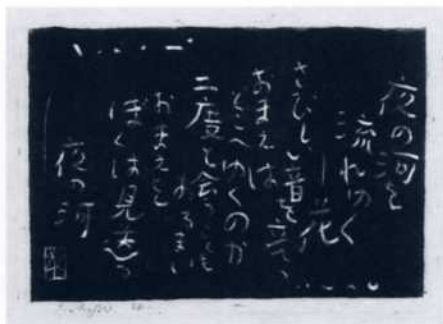 夜の河を
流れゆく
一花
さびしい音を立てて
おまえは
どこへゆくのか
二度と会うことも
あるまい
おまえを
ぼくは見送る
夜の河